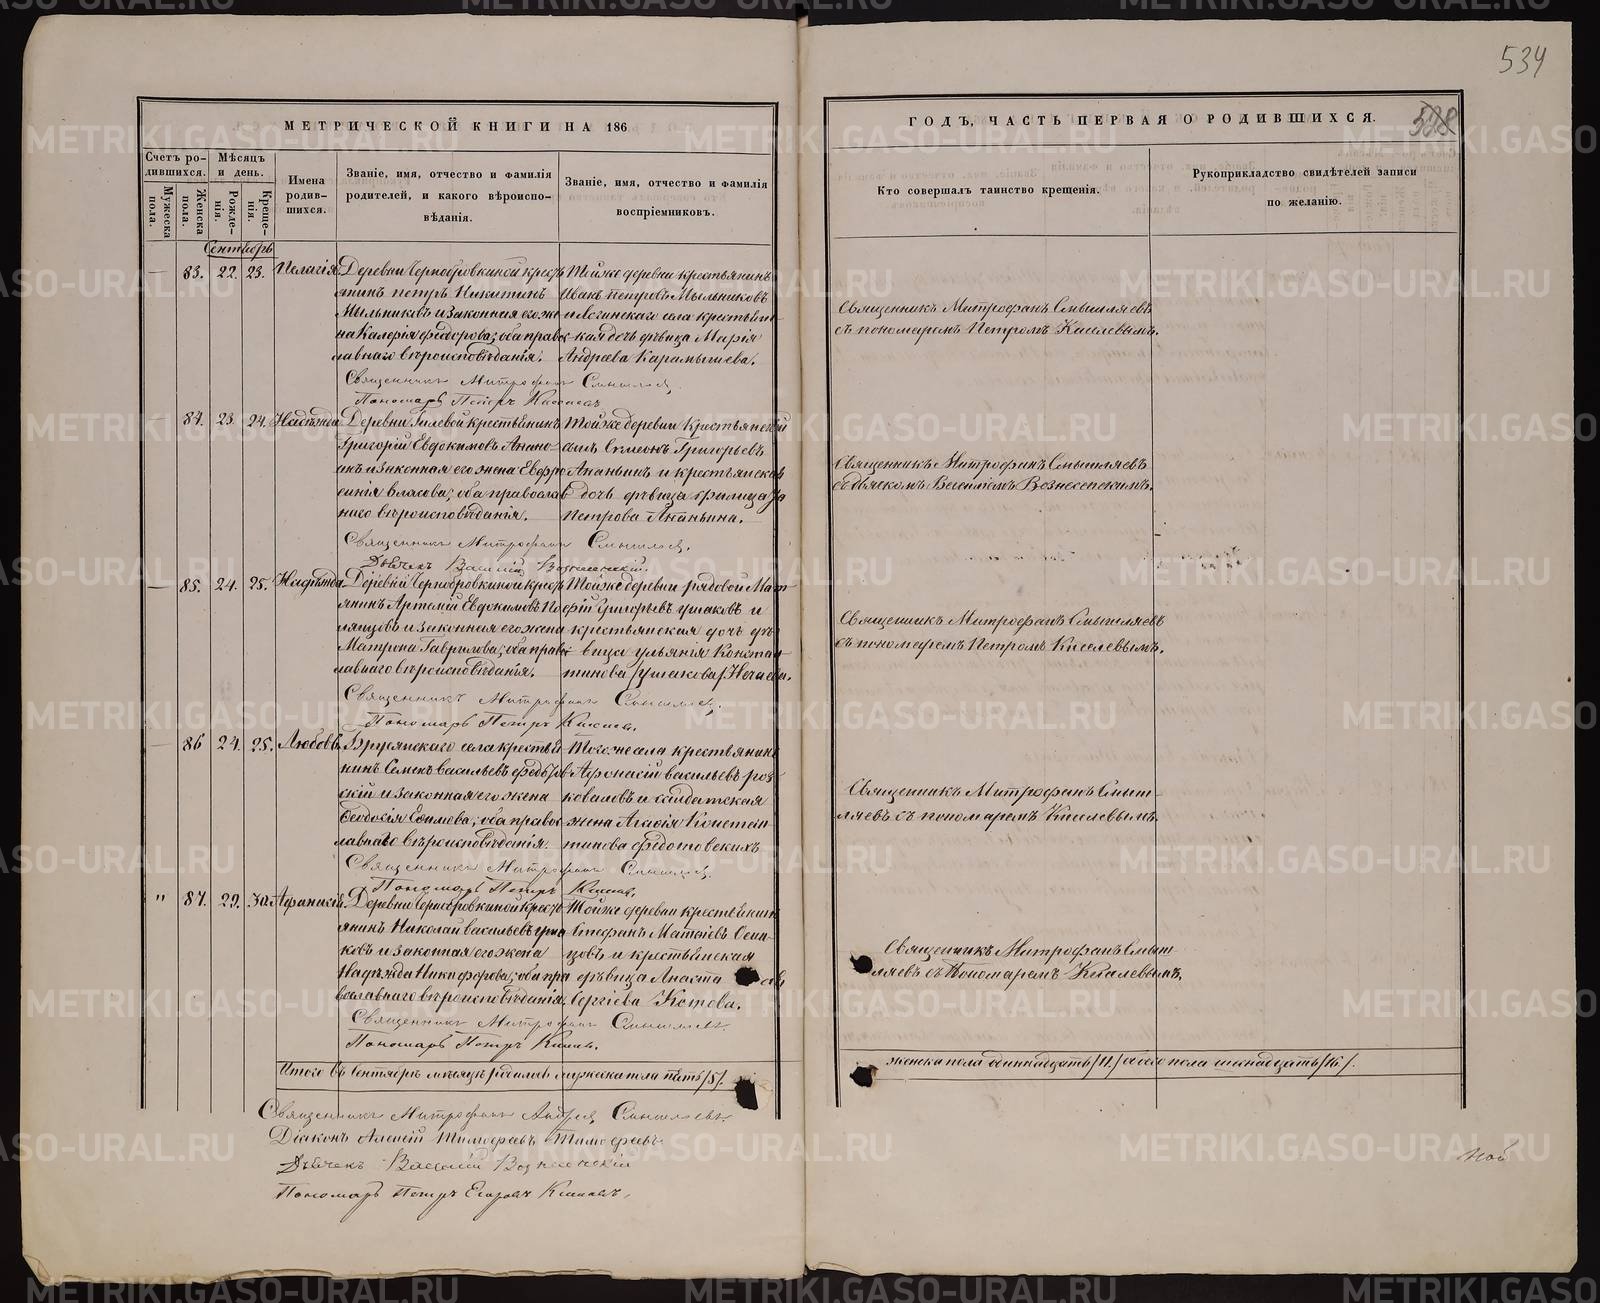 534
528
МЕТРИЧЕСКОЙ КНИГИ НА 186
ГОДЪ, ЧАСТЬ ПЕРВАЯ О РОДИВШИХСЯ.
Счетъ родившихся.
Мужеска пола.
Женска пола.
Мѣсяцъ и день.
Рожденія.
Крещенія.
Имена родившихся.
Званіе, имя, отчество и фамилія
родителей, и какого вѣроиспо-
вѣданія.
Званіе, имя, отчество и фамилія
воспріемниковъ.
Кто совершалъ таинство крещенія.
Рукоприкладство свидѣтелей записи
по желанію.
Сентябрь
83. 22. 23. Пелагія
Деревни Чернобровкиной крестъ
янинъ Петръ Никитинъ
Мыльниковъ и законная его же
на Калерія Федорова; оба правос
лавнаго вѣроисповѣданія.
Тойже деревни крестьянинъ
Иванъ Петровъ Мыльниковъ
и Логинскаго села крестьян
ская дочь дѣвица Марія
Андреева Карамышева.
Священникъ Митрофанъ Смышляевъ
съ пономаремъ Петромъ Киселевымъ.
Священникъ Митрофанъ Смышляевъ
Пономарь Петръ Киселевъ
84. 23. 24. Надежда
Деревни Гилевой крестьянинъ
Григорій Евдокимовъ Анань
инъ и законная его жена Евфро
синія Власова; оба православ
наго вѣроисповѣданія.
Тойже деревни Крестьянскій
сынъ Симеонъ Григорьевъ
Ананьинъ и крестьянская
дочь дѣвица
Петрова Ананьина.
Священникъ Митрофанъ Смышляевъ
съ дьячкомъ Василіемъ Вознесенскимъ.
Священникъ Митрофанъ Смышляевъ
Дьячекъ Василій Вознесенскій.
85. 24. 25. Надежда
Деревни Чернобровкиной крестъ
янинъ Артемій Евдокимовъ По
и законная его жена
Матрона Гаврилова; оба правос
лавнаго вѣроисповѣданія.
Тойже деревни рядовой Мат
фій Григорьевъ Ушаковъ и
крестьянская дочь дѣ
вица Ульянія Констан
тинова /Ушакова/ Нечаева.
Священникъ Митрофанъ Смышляевъ
съ пономаремъ Петромъ Киселевымъ.
Священникъ Митрофанъ Смышляевъ
Пономарь Петръ Киселевъ.
86 24. 25. Любовь
Бруснскаго села крестья
нинъ Семенъ Васильевъ Федоров
скій и законная его жена
Феодосія Ефимова; оба правос
лавнаго вѣроисповѣданія.
Тогоже села крестьянинъ
Афонасій Васильевъ
и солдатская
жена Агафія Констан
тинова Федотовскихъ
Священникъ Митрофанъ Смыш-
ляевъ съ пономаремъ Киселевымъ.
Священникъ Митрофанъ Смышляевъ.
Пономарь Петръ Киселевъ.
" 87. 29. 30. Афанасій.
Деревни Чернобровкиной крестъ
янинъ Николай Васильевъ
ковъ и законная его жена
Надежда Никифорова; оба пра
вославнаго вѣроисповѣданія.
Тойже деревни крестьянинъ
Стефанъ Матвіевъ Осин
цовъ и крестьянская
дѣвица Анаста
Сергіева /Котова.
Священникъ Митрофанъ Смыш
ляевъ съ Пономаремъ Киселевымъ.
Священникъ Митрофанъ Смышляевъ
Пономарь Петръ Киселевъ.
Итого въ Сентябрѣ мѣсяцѣ родилось мужеска пола пять /5/.
женска пола одиннадцать /11./ обоего пола шестнадцать /16./.
Священникъ Митрофанъ Андреевъ Смышляевъ.
Діаконъ Алексій Тимофеевъ Тимофеевъ
Дьячекъ Василій Вознесенскій
Пономарь Петръ Егоровъ Киселевъ.
METRIKI.GASO-URAL.RU